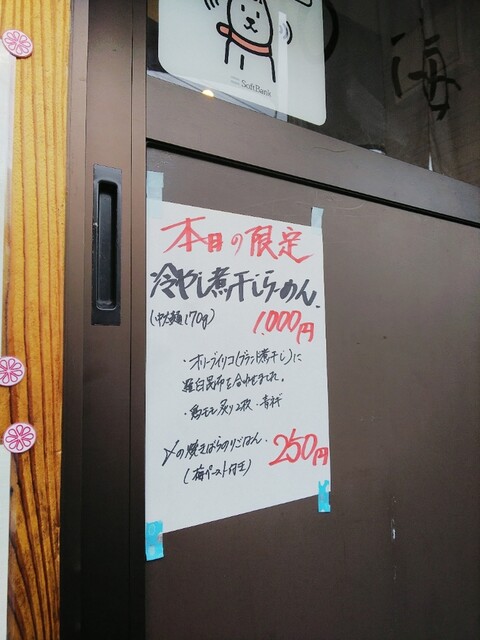 SoftBank
海
本日の限定
冷やし煮干しらーめん.
(中太麺170g)
1.000円
・オリーブイリコ(ブランド煮干し)に
羅臼昆布を合わせました。
・鶏モモ炙り2枚・青ネギ
〆の焼きばらのりごはん.
250円
(梅ペースト付き)